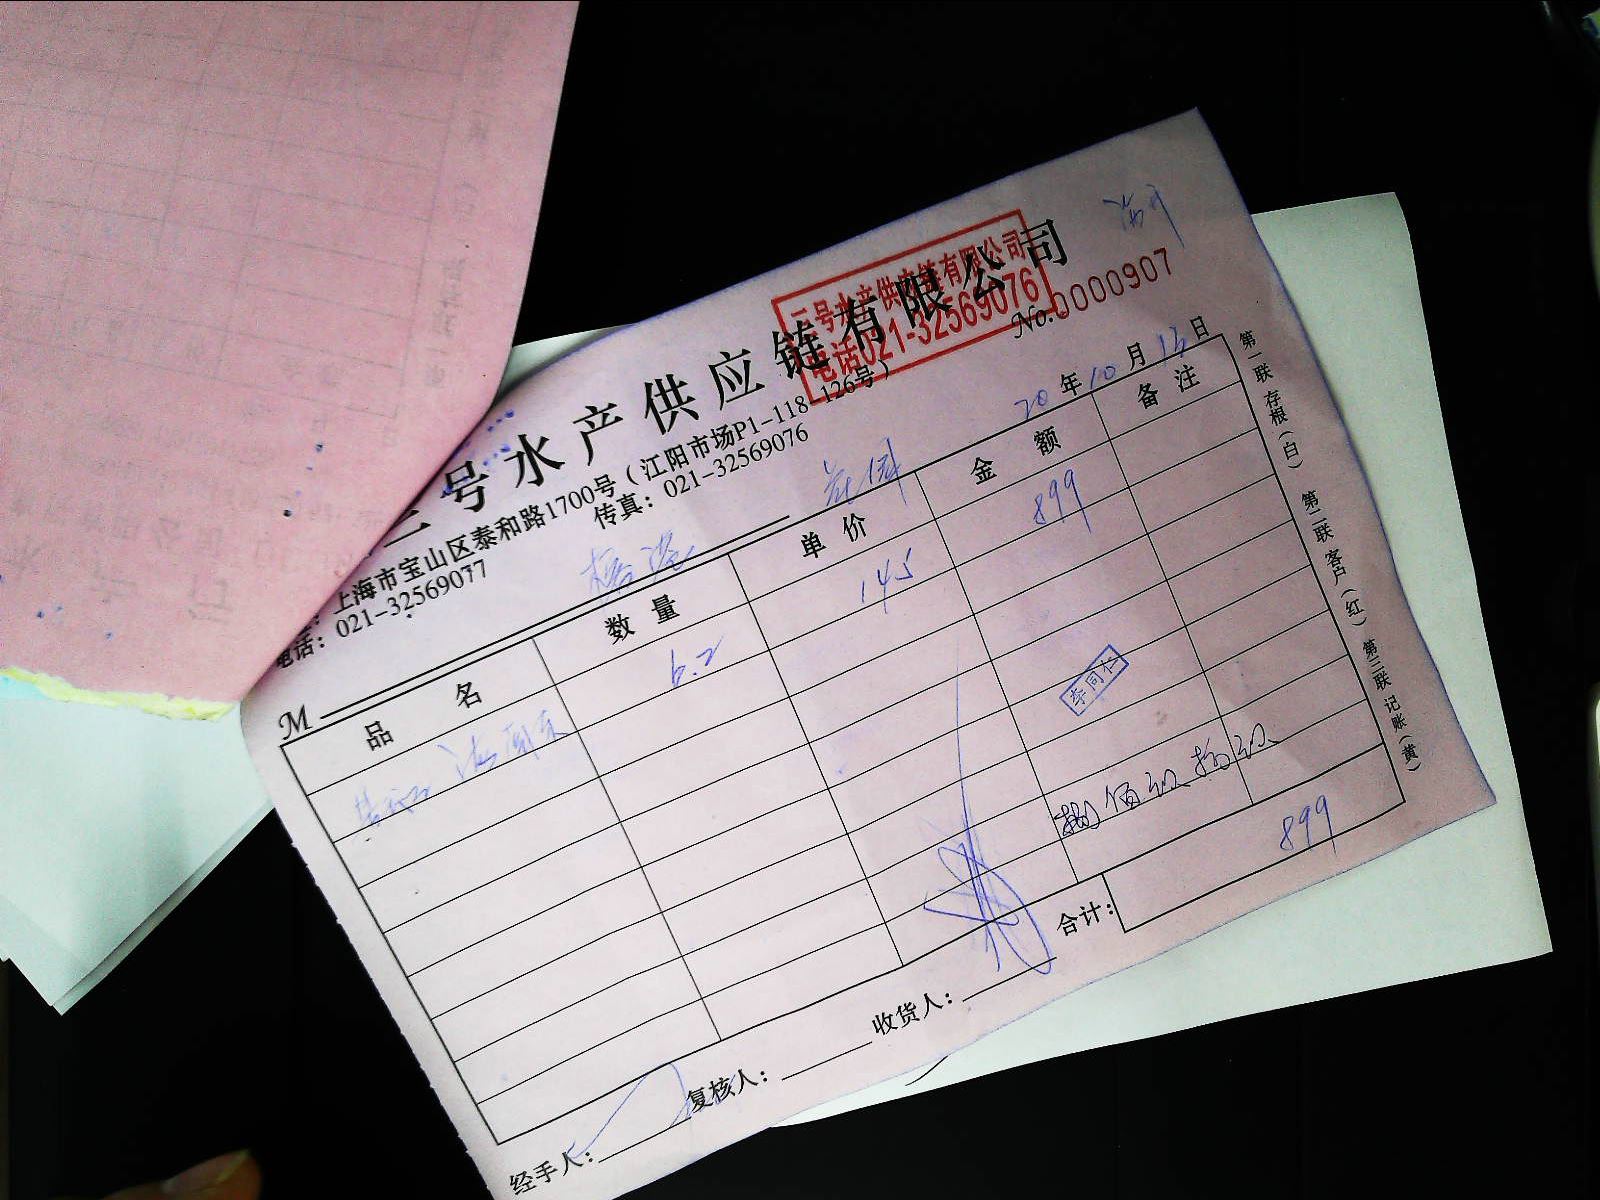 三号水产供应链有限公司
三号水产供应链有限公司
电话021-32569076
No. 0000907
上海市宝山区泰和路1700号（江阳市场P1-118-126号）
电话：021-32569077
传真：021-32569076
20年10月13日
M
品名 数量 单价 金额 备注
6.2 145 899
李同仁
捌佰玖拾玖
合计： 899
经手人： 复核人： 收货人：
第一联 存根（白） 第二联 客户（红） 第三联 记账（黄）